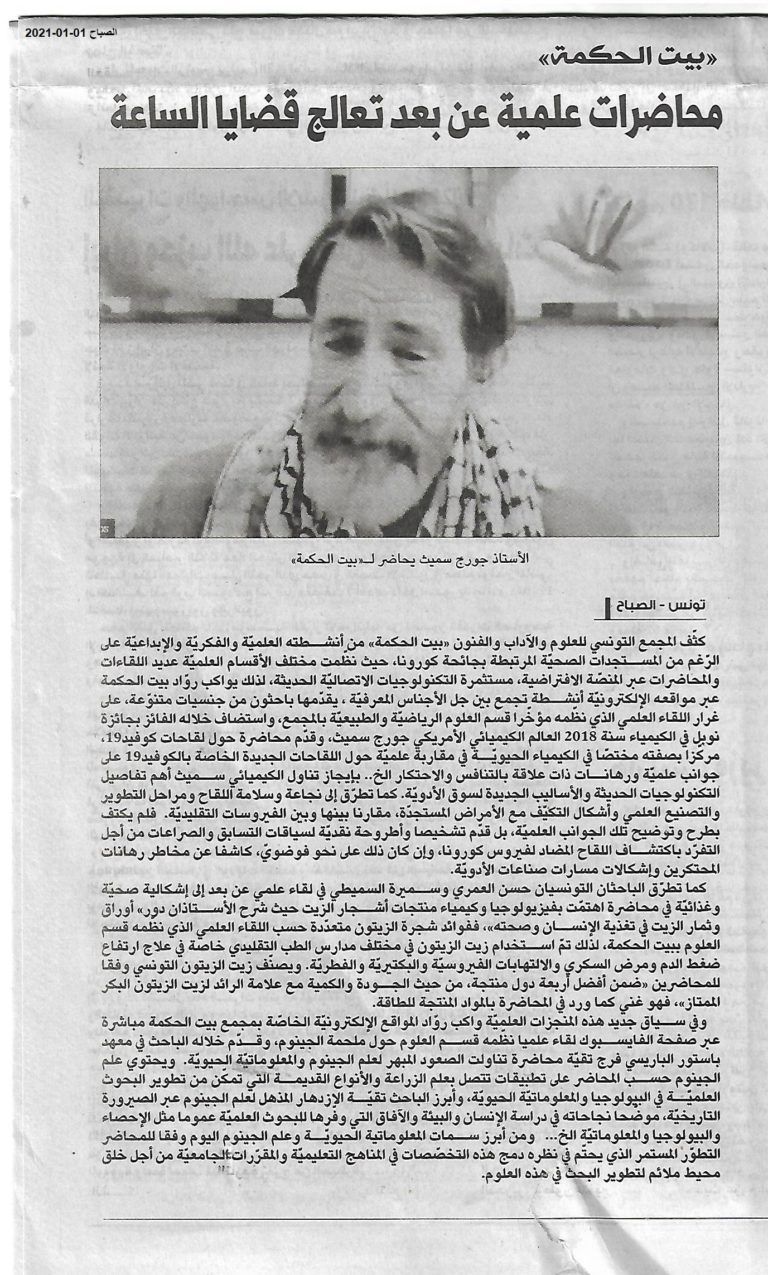 الصباح 01-01-2021
«بيت الحكمة»
محاضرات علمية عن بعد تعالج قضايا الساعة
الأستاذ جورج سميث يحاضر لـ«بيت الحكمة»
تونس - الصباح
كثّف المجمع التونسي للعلوم والآداب والفنون «بيت الحكمة» من أنشطته العلميّة والفكريّة والإبداعيّة على
الرّغم من المستجدات الصحيّة المرتبطة بجائحة كورونا، حيث نظّمت مختلف الأقسام العلميّة عديد اللقاءات
والمحاضرات عبر المنصّة الافتراضية، مستثمرة التكنولوجيات الاتصاليّة الحديثة، لذلك يواكب روّاد بيت الحكمة
عبر مواقعه الإلكترونيّة أنشطة تجمع بين جل الأجناس المعرفيّة ، يقدّمها باحثون من جنسيات متنوّعة، على
غرار اللقاء العلمي الذي نظمه مؤخرا قسم العلوم الرياضيّة والطبيعيّة بالمجمع، واستضاف خلاله الفائز بجائزة
نوبل في الكيمياء سنة 2018 العالم الكيميائي الأمريكي جورج سميث، وقدّم محاضرة حول لقاحات كوفيد19،
مركزا بصفته مختصّا في الكيمياء الحيويّة في مقاربة علميّة حول اللقاحات الجديدة الخاصة بالكوفيد19 على
جوانب علميّة ورهانات ذات علاقة بالتنافس والاحتكار الخ.. بإيجاز تناول الكيميائي سميث أهم تفاصيل
التكنولوجيات الحديثة والأساليب الجديدة لسوق الأدويّة. كما تطرّق إلى نجاعة وسلامة اللقاح ومراحل التطوير
والتصنيع العلمي وأشكال التكيّف مع الأمراض المستجدّة، مقارنا بينها وبين الفيروسات التقليديّة. فلم يكتف
بطرح وتوضيح تلك الجوانب العلميّة، بل قدّم تشخيصا وأطروحة نقديّة لسياقات التسابق والصراعات من أجل
التفرّد باكتشاف اللقاح المضاد لفيروس كورونا، وإن كان ذلك على نحو فوضويّ، كاشفا عن مخاطر رهانات
المحتكرين وإشكالات مسارات صناعات الأدويّة.
كما تطرّق الباحثان التونسيان حسن العمري وسميرة السميطي في لقاء علمي عن بعد إلى إشكالية صحيّة
وغذائيّة في محاضرة اهتمّت بفيزيولوجيا وكيمياء منتجات أشجار الزيت حيث شرح الأستاذان دور» أوراق
وثمار الزيت في تغذية الإنسان وصحته»، ففوائد شجرة الزيتون متعدّدة حسب اللقاء العلمي الذي نظمه قسم
العلوم ببيت الحكمة، لذلك تمّ استخدام زيت الزيتون في مختلف مدارس الطب التقليدي خاصة في علاج ارتفاع
ضغط الدم ومرض السكري والالتهابات الفيروسيّة والبكتيريّة والفطريّة. ويصنّف زيت الزيتون التونسي وفقا
للمحاضرين «ضمن أفضل أربعة دول منتجة، من حيث الجودة والكمية مع علامة الرائد لزيت الزيتون البكر
الممتاز»، فهو غني كما ورد في المحاضرة بالمواد المنتجة للطاقة.
وفي سياق جديد هذه المنجزات العلميّة واكب روّاد المواقع الإلكترونيّة الخاصّة بمجمع بيت الحكمة مباشرة
عبر صفحة الفايسبوك لقاء علميا نظمه قسم العلوم حول ملحمة الجينوم، وقدّم خلاله الباحث في معهد
باستور الباريسي فرج تقيّة محاضرة تناولت الصعود المبهر لعلم الجينوم والمعلوماتيّة الحيويّة. ويحتوي علم
الجينوم حسب المحاضر على تطبيقات تتصل بعلم الزراعة والأنواع القديمة التي تمكّن من تطوير البحوث
العلميّة في البيولوجيا والمعلوماتيّة الحيويّة، وأبرز الباحث تقيّة الإزدهار المذهل لعلم الجينوم عبر الصيرورة
التاريخيّة، موضحا نجاحاته في دراسة الإنسان والبيئة والآفاق التي وفرها للبحوث العلميّة عموما مثل الإحصاء
والبيولوجيا والمعلوماتيّة الخ... ومن أبرز سمات المعلوماتية الحيويّة وعلم الجينوم اليوم وفقا للمحاضر
التطوّر المستمر الذي يحتّم في نظره دمج هذه التخصّصات في المناهج التعليميّة والمقرّرات الجامعيّة من أجل خلق
محيط ملائم لتطوير البحث في هذه العلوم.